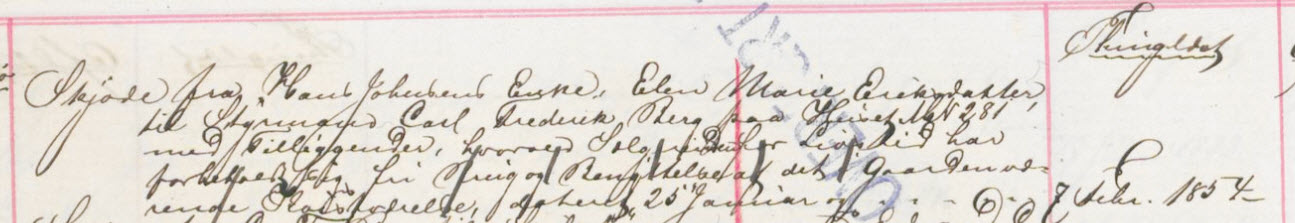 Thinglæst
Skjøde fra Hans Johnsens Enke, Elen Marie Eriksdatter,
til Styrmand Carl Frederik Berg paa Huset Mt N 281
med Tilliggender, hvorved Sælgerinden her Livstid har
forbeholdt sig fri Brug og Benyttelse af det i Gaarden væ-
rende Værelse, dateret 25 Januar og
7 Febr. 1854